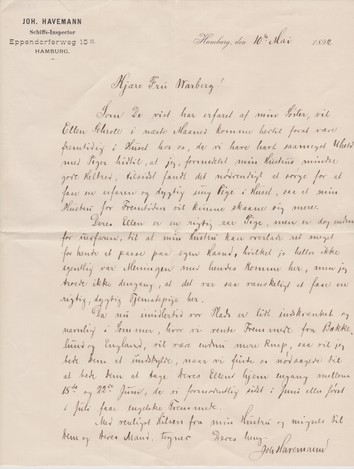 JOH. HAVEMANN
Schiffs-Inspector
Eppendorferweg 15 II.
HAMBURG.
Hamburg, den 10th Mai 1892
Kjære Frú Warberg!
Som De vist har erfaret af min Søster, vil
Ellen i næste Maaned komme hertil for at være
fremtidig i Huset her os, da vi have havt saameget Uheld
med Piger hidtil, at jeg, formedelst min Hustrús mindre
gode Helbred, tilsidst fandt det nødvendigt at sørge for at
faae en erfaren og dygtig úng Pige i Húset, saa at min
Hústrú for Fremtiden vil kúnne skaane sig mere.
Deres Ellen er en rigtig rar Pige, men er dog
for til at min Hústrú kan overlade ret meget
for hende at passe paa egen Haand, hvilket jo heller ikke
egentlig var Meningen med hendes Komme her, men jeg
troede ikke dengang, at det var saa vanskeligt at faae en
rigtig, dygtig Tjenestepige her.
Da nú imidlertid vor Plads er lidt indskrænket og
navnlig i Sommer, hvor vi vente Fremmede fra
og England, vil være endnú mere knap, saa vil jeg
bede Dem at undskylde, naar vi føle os nødsagede til
at bede Dem at tage Deres Ellen hjem engang mellem
15de og 22de Júni, da vi formodentlig sidst i Júni eller først
i Júli faae engelske Fremmede.
Med venligst Hilsen fra min Hústrú og migselv til
Dem og Deres Mand, tegner Deres
Joh Havemann